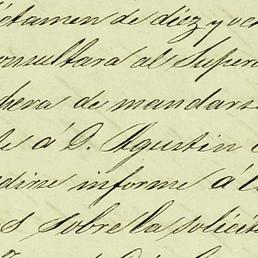 ctamen de diez y oc
onsultara al Super
pera de mandars
le á D. Agustin
dirse informe á l
s sobre la solicit